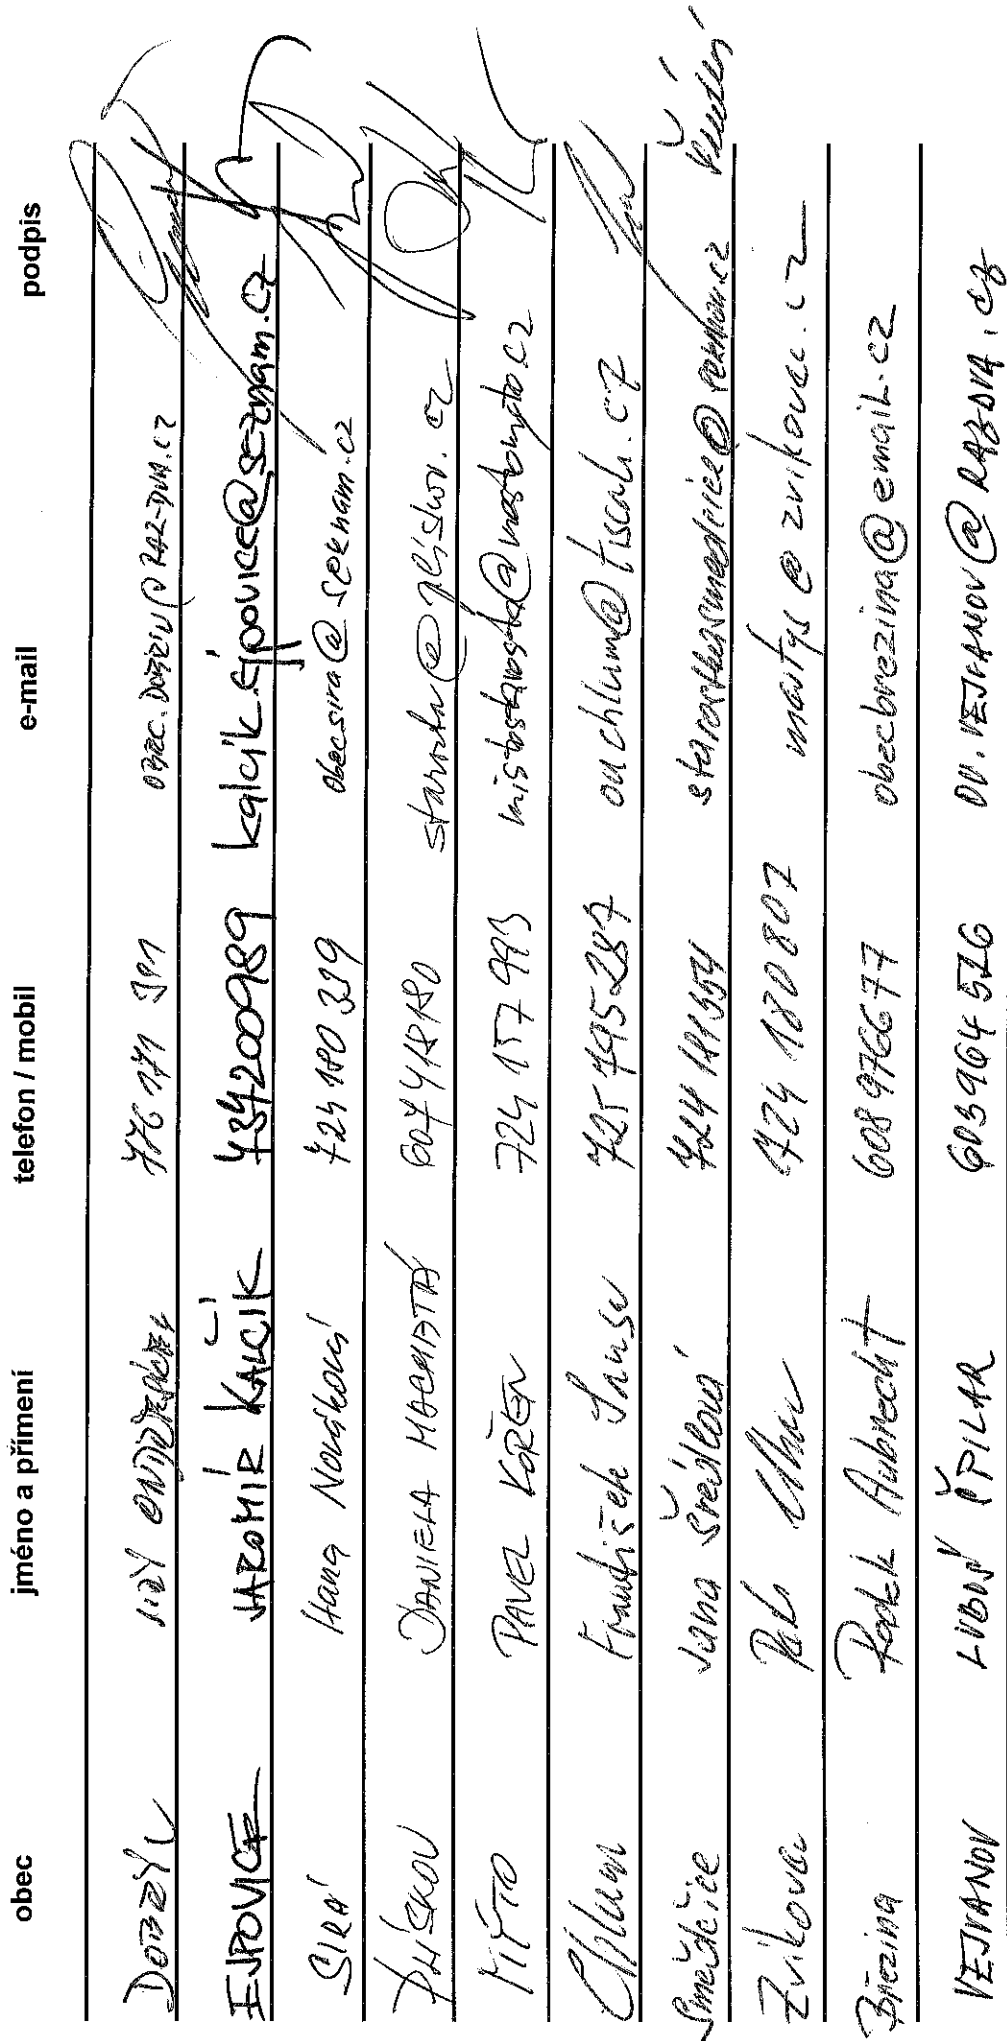 obec jméno a přímení telefon / mobil e-mail podpis
DOBŘÍV JIŘÍ 776 171
EJPOVICE JAROMÍR KALČÍK 734200989 kalcik.ejpovice@seznam.cz
SIRÁ Hana Nováková 724 180 339 obecsira@seznam.cz
PLÍSKOV DANIELA MACHATÁ 607418180 starosta@pliskov.cz
MÝTO PAVEL KOŘEN 724 157 993 mistostarosta@mestomyto.cz
Chlum František 725 795 287 ouchlum@tiscali.cz
Smědčice Jana Šrédlová 724181554 starostkasmedcice@seznam.cz
Zvíkovec 724 180 807 matys@zvikovec.cz
Březina Radek Aubrecht 608 976677 obecbrezina@email.cz
VEJVANOV LUBOŠ ŠPILAR 603964526 OU.VEJVANOV@RAZDVA.CZ